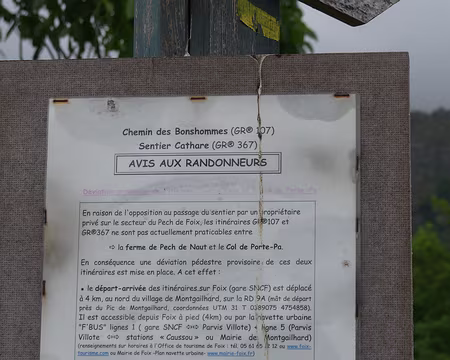 Chemin des Bonshommes (GR® 107)
Sentier Cathare (GR® 367)
AVIS AUX RANDONNEURS
En raison de l'opposition au passage du sentier par un propriétaire
privé sur le secteur du Pech de Foix, les itinéraires GR®107 et
GR®367 ne sont pas actuellement praticables entre
⇨ la ferme de Pech de Naut et le Col de Porte-Pa.
En conséquence une déviation pédestre provisoire de ces deux
itinéraires est mise en place. A cet effet :
• le départ-arrivée des itinéraires sur Foix (gare SNCF) est déplacé
à 4 km, au nord du village de Montgailhard, sur la RD 9A (mât de départ
près du Pic de Montgailhard, coordonnées UTM 31 T 0389075 4754858).
Il est accessible depuis Foix à pied (4km) ou par la navette urbaine
"F'BUS" lignes 1 ( gare SNCF ⇔ Parvis Villote) - ligne 5 (Parvis
Villote ⇔ stations « Caussou» ou Mairie de Montgailhard)
(renseignements sur horaires à l'Office de tourisme de Foix : tél. 05 61 65 12 12 ou www.foix-
tourisme.com ou Mairie de Foix -Plan navette urbaine- www.mairie-foix.fr)